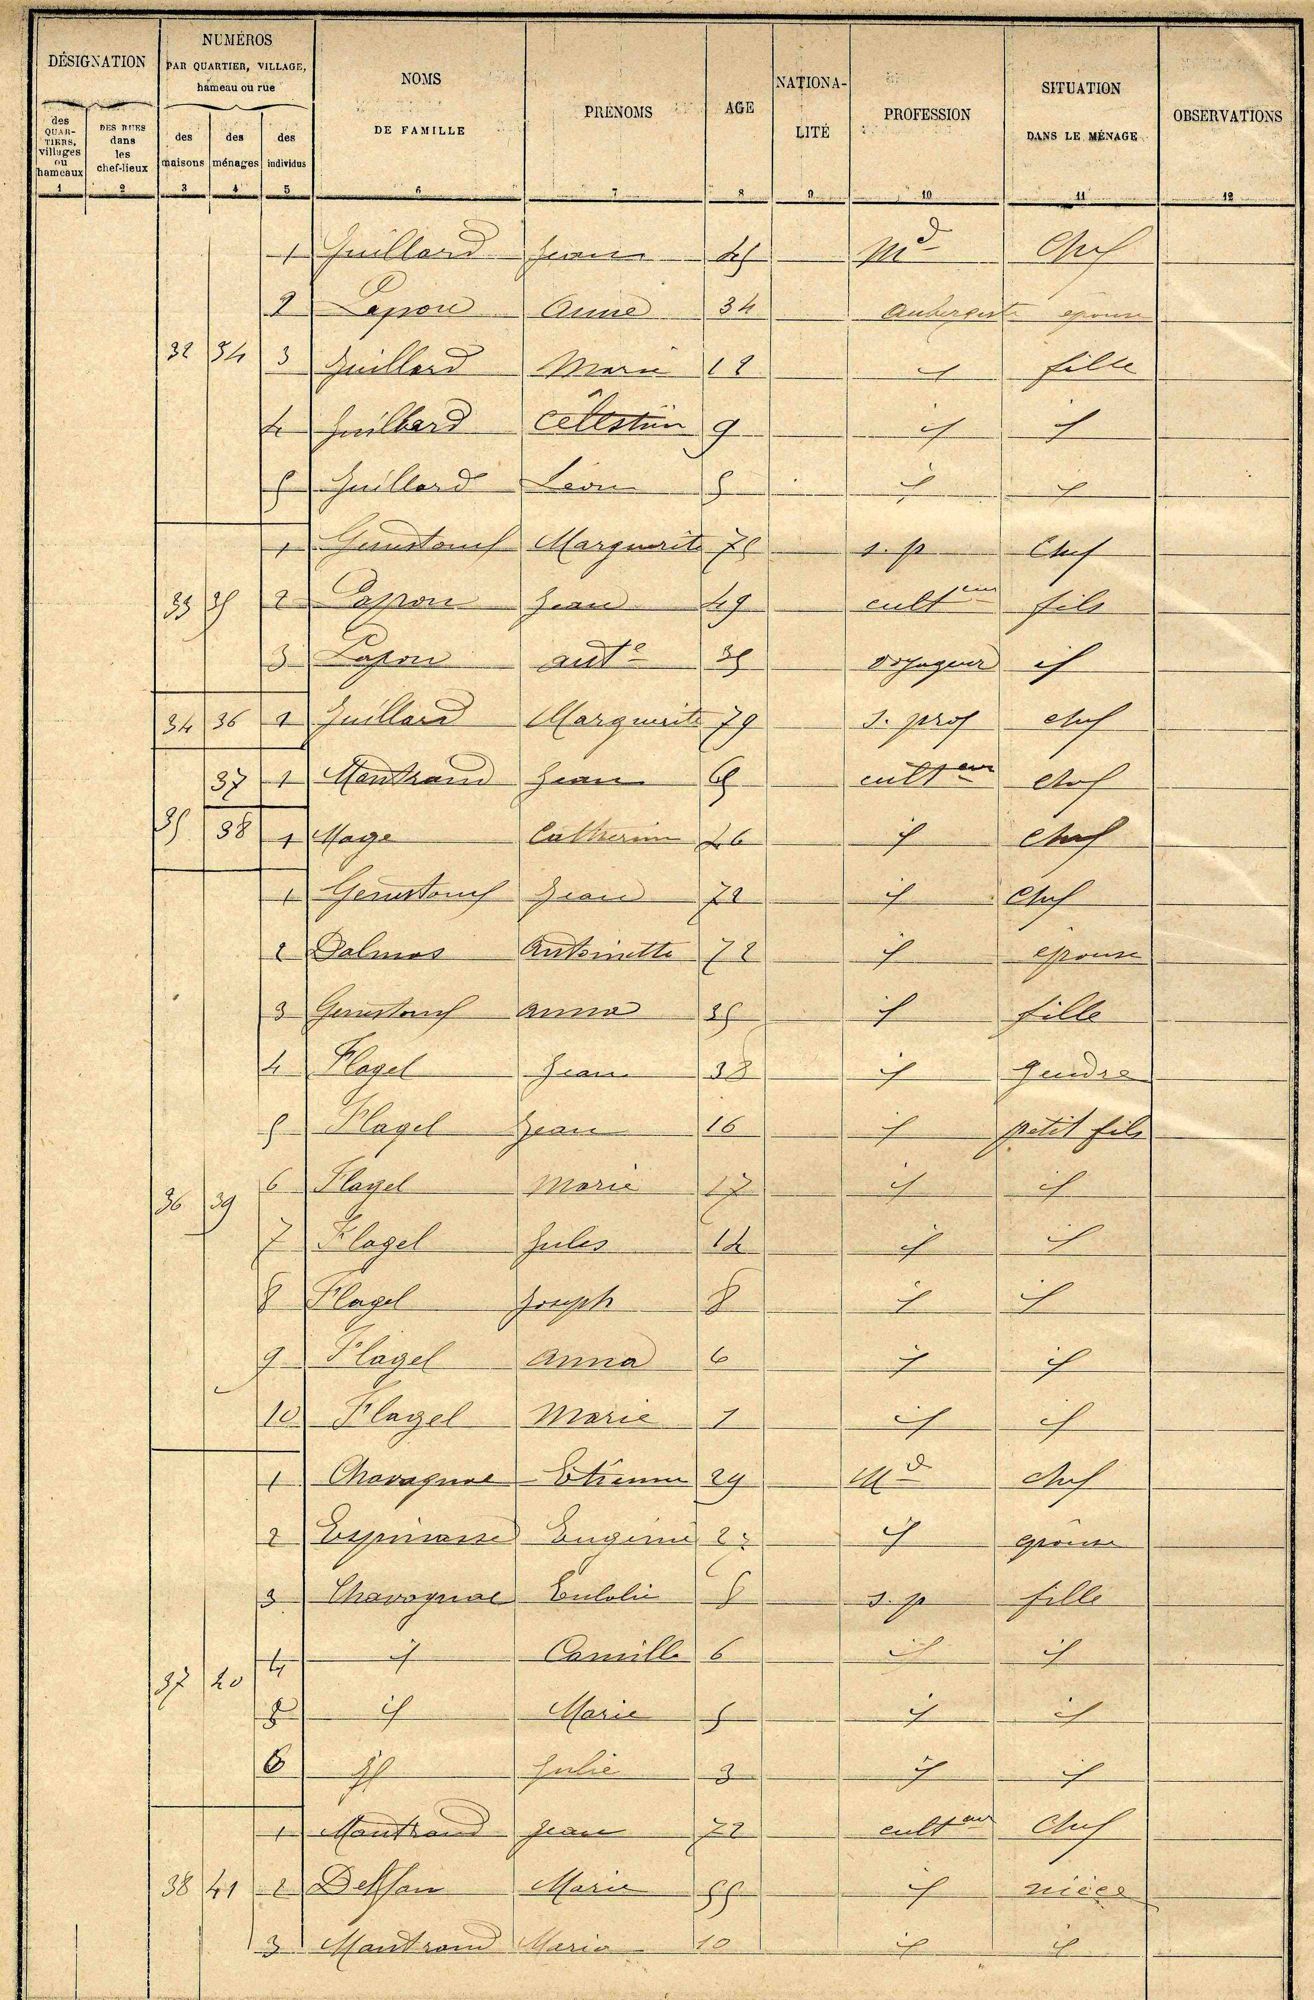 DÉSIGNATION
NUMÉROS
PAR QUARTIER, VILLAGE,
hameau ou rue
NOMS
DE FAMILLE
PRÉNOMS
AGE
NATIONA-
LITÉ
PROFESSION
SITUATION
DANS LE MÉNAGE
OBSERVATIONS
des
QUAR-
TIERS,
villages
ou
hameaux
DES RUES
dans
les
chef-lieux
des
maisons
des
ménages
des
individus
1 2 3 4 5 6 7 8 9 10 11 12
1 Juillard Jean 45 Md Chef
2 Lapore Anne 34 aubergiste épouse
32 34 3 Juillard Marie 12 id fille
4 Juillard Célestin 9 id id
5 Juillard Léon 5 id id
1 Genestouf Marguerite 75 s. p Chef
33 35 2 Papon Jean 49 culteur fils
3 Papon ante 35 voyageur id
34 36 1 Juillard Marguerite 79 s. prof chef
37 1 Mantrand Jean 65 culteur chef
35 38 1 Mage Catherine 46 id chef
1 Genestouf Jean 72 id chef
2 Dalmas Antoinette 72 id épouse
3 Genestouf anna 35 id fille
4 Flagel Jean 38 id gendre
5 Flagel Jean 16 id petit fils
36 39 6 Flagel Marie 17 id id
7 Flagel Jules 14 id id
8 Flagel Joseph 8 id id
9 Flagel anna 6 id id
10 Flagel Marie 1 id id
1 Chavagnac Etienne 29 Md chef
2 Espinasse Eugénie id épouse
3 Chavagnac Eulalie 8 s. p fille
4 id Camille 6 id id
37 40 5 id Marie 5 id id
6 id Julie 3 id id
1 Mantrand Jean 72 culteur Chef
38 41 2 Marie 55 id nièce
3 Mantrand Maria 10 id id